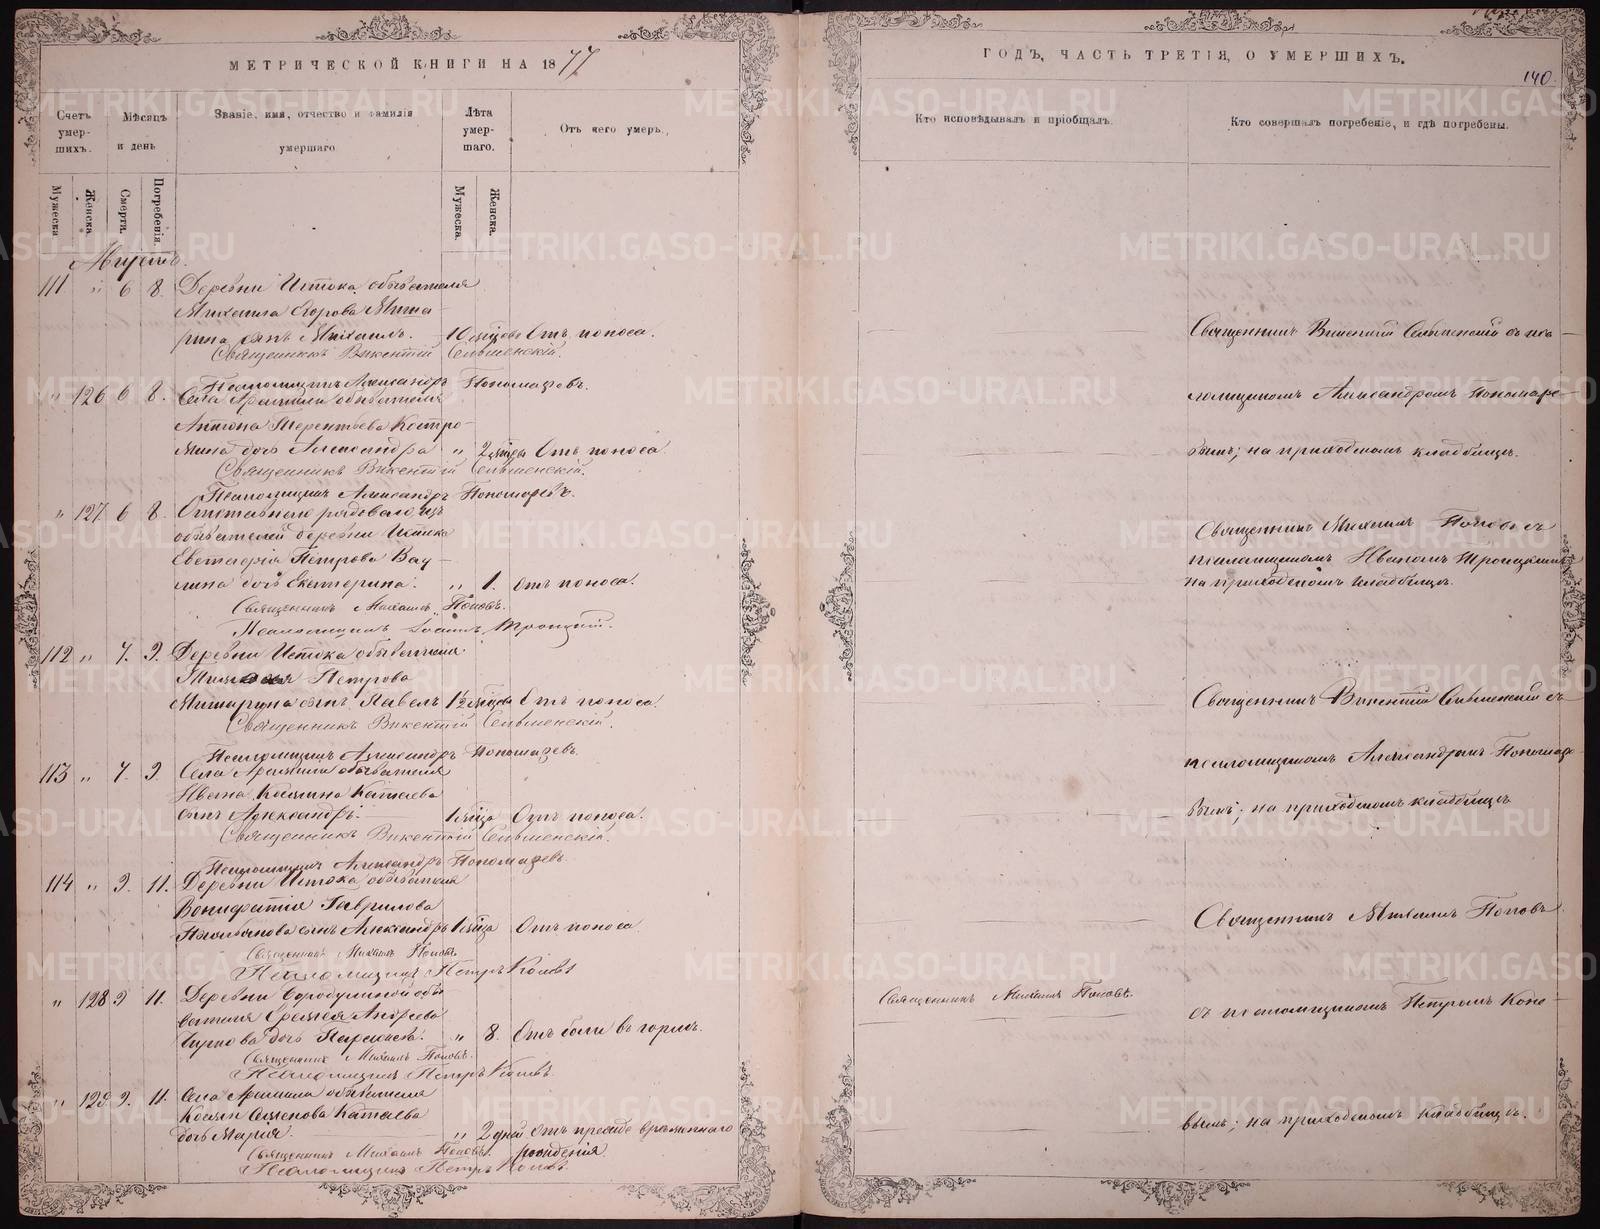 МЕТРИЧЕСКОЙ КНИГИ НА 1877
ГОДЪ, ЧАСТЬ ТРЕТІЯ, О УМЕРШИХЪ.
140
Счетъ умершихъ.
Мѣсяцъ и день
Званіе, имя, отчество и фамилія умершаго
Лѣта умершаго.
Отъ чего умеръ.
Кто исповѣдывалъ и пріобщалъ.
Кто совершалъ погребеніе, и гдѣ погребены.
Мужеска
Женска.
Смерти.
Погребенія.
Мужеска.
Женска.
Августъ.
111 " 6 8. Деревни Истока обывателя
Михаила Егорова Миша-
рина сынъ Михаилъ. 10 мѣсцовъ Отъ поноса.
Священникъ Викентій Сельменскій.
Псаломщикъ Александръ Пономаревъ.
" 126 6 8. Села Арамили обывателя
Антона Терентьева Костро-
мина дочь Александра " 2 мѣсцы Отъ поноса
Священникъ Викентій Сельменскій.
Псаломщикъ Александръ Пономаревъ.
Священникъ Викентій Сельменскій съ пса-
ломщикомъ Александромъ Пономаре-
вымъ; на приходскомъ кладбищѣ.
" 127 6 8. Отставнаго рядоваго изъ
обывателей деревни Истока
Евстафія Петрова Вау-
лина дочь Екатерина. " 1. Отъ поноса.
Священникъ Михаилъ Поповъ.
Псаломщикъ Іоаннъ Троицкій.
Священникъ Михаилъ Поповъ съ
псаломщикомъ Иваномъ Троицкимъ
на приходскомъ кладбищѣ.
112 " 7. 9. Деревни Истока обывателя
Петрова
Мишарина сынъ Павелъ 1½ мѣсца Отъ поноса.
Священникъ Викентій Сельменскій.
Псаломщикъ Александръ Пономаревъ.
113 " 7. 9. Села Арамили обывателя
Ивана Космина Катаева
сынъ Александръ. 1 мѣсца Отъ поноса.
Священникъ Викентій Сельменскій.
Псаломщикъ Александръ Пономаревъ.
Священникъ Викентій Сельменскій съ
псаломщикомъ Александромъ Пономаре-
вымъ; на приходскомъ кладбищѣ
114 " 9. 11. Деревни Истока обывателя
Вонифатія Гаврилова
сынъ Александръ 1 мѣсца Отъ поноса
Священникъ Михаилъ Поповъ
Псаломщикъ Петръ Коневъ
" 128 9 11. Деревни Бородулиной обы-
вателя Андреева
Чиркова дочь Параскева. " 8. Отъ боли въ горлѣ.
Священникъ Михаилъ Поповъ.
Псаломщикъ Петръ Коневъ.
Священникъ Михаилъ Поповъ.
" 129 9. 11. Села Арамили обывателя
Космы Семенова Катаева
дочь Марія. " 2 дней Отъ прежде временнаго
рожденія.
Священникъ Михаилъ Поповъ.
Псаломщикъ Петръ Коневъ.
Священникъ Михаилъ Поповъ
съ псаломщикомъ Петромъ Коне-
вымъ; на приходскомъ кладбищѣ.
METRIKI.GASO-URAL.RU